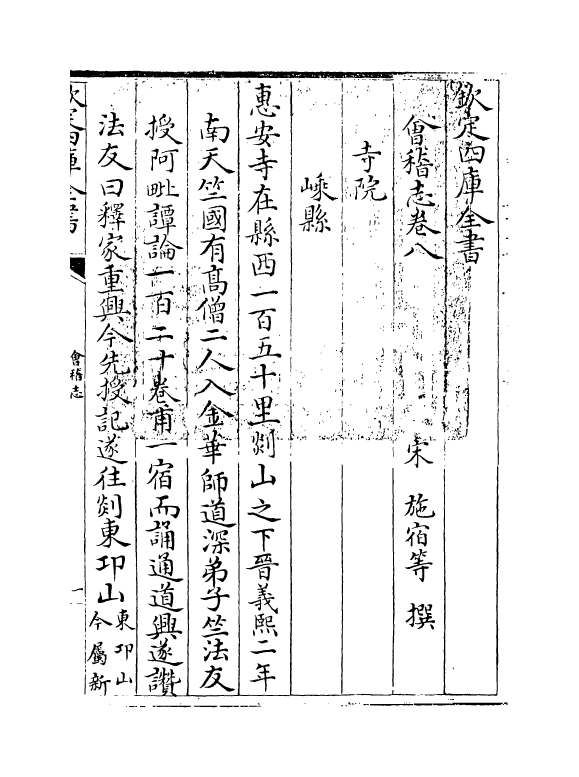 欽定四庫全書
會稽志卷八
宋 施宿等 撰
寺院
嵊縣
惠安寺在縣西一百五十里剡山之下晉義熙二年
南天竺國有髙僧二人入金華師道深弟子竺法友
授阿毗譚論一百二十卷甫一宿而誦通道興遂讚
法友曰釋家重興今先授記遂往剡東卭山
東卭山
今屬新
欽定四庫全書
會稽志
一